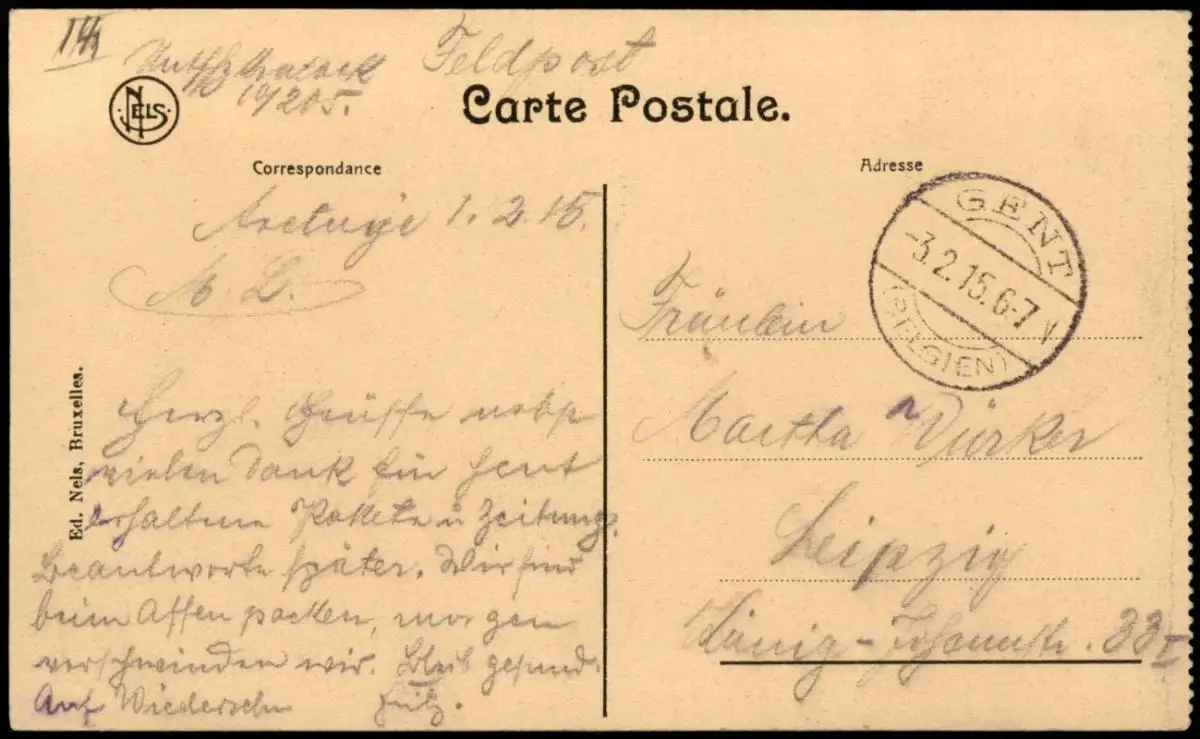 Feldpost
NELS
10/2 05.
Carte Postale.
Correspondance
1. 2. 15.
M. L.
Herzl. Grüsse nebst
vielen Dank für heut
erhaltene Pakete u Zeitung.
Beantworte später. Wir sind
beim Affen packen, morgen
verschwinden wir. Bleib gesund.
Auf Wiedersehn
Fritz.
Ed. Nels, Bruxelles.
Adresse
GENT
-3.2.15.6-7 V
(BELGIEN)
Fräulein
Martha Dürker
Leipzig
König-Johannstr. 33 I